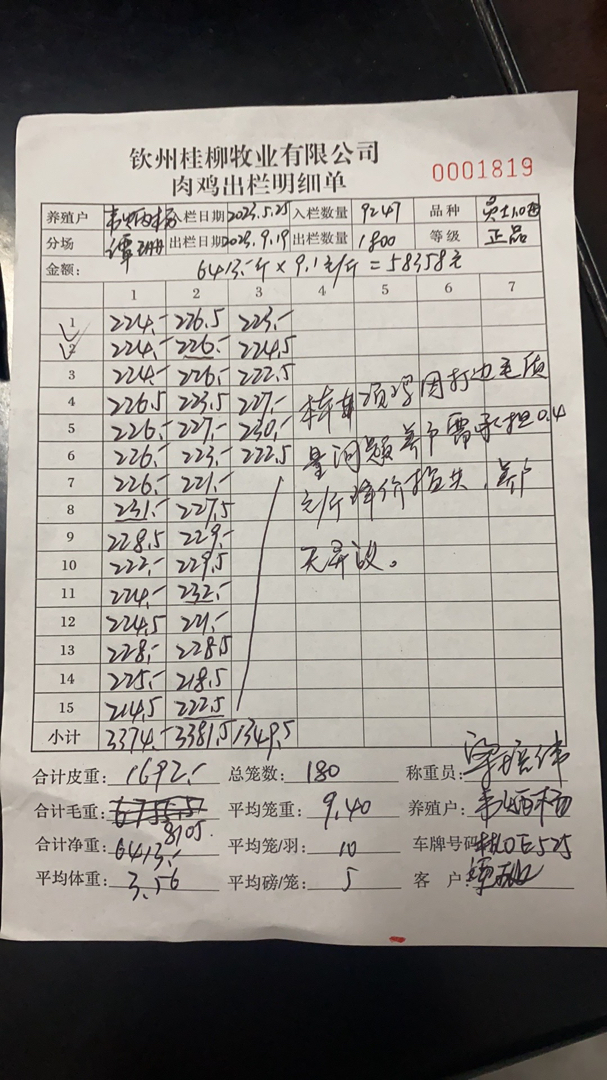 钦州桂柳牧业有限公司
肉鸡出栏明细单 0001819
养殖户 入栏日期 2023.5.25 入栏数量 9247 品种
分场 谭 出栏日期 2023.9.19 出栏数量 1800 等级 正品
金额: 6413.-斤 × 9.1元/斤 = 58358元
1 2 3 4 5 6 7
1 224.- 226.5 223.-
2 224.- 226.- 224.5
3 224.- 226.- 222.5
4 226.5 223.5 227.- 本车 项鸡因打边毛质
5 226.- 227.- 230.- 量问题养户需承担0.4
6 226.- 223.- 222.5
7 226.- 221.- 元/斤降价损失,养户
8 231.- 227.5
9 228.5 229.- 无异议。
10 222.- 229.5
11 224.- 232.-
12 224.5 221.-
13 228.- 228.5
14 225.- 218.5
15 214.5 222.5
小计 3374.- 3381.5 1349.5
合计皮重: 1692.- 总笼数: 180 称重员:
合计毛重: 8105. 平均笼重: 9.40 养殖户:
合计净重: 6413.- 平均笼/羽: 10 车牌号码:
平均体重: 3.56 平均磅/笼: 5 客 户: